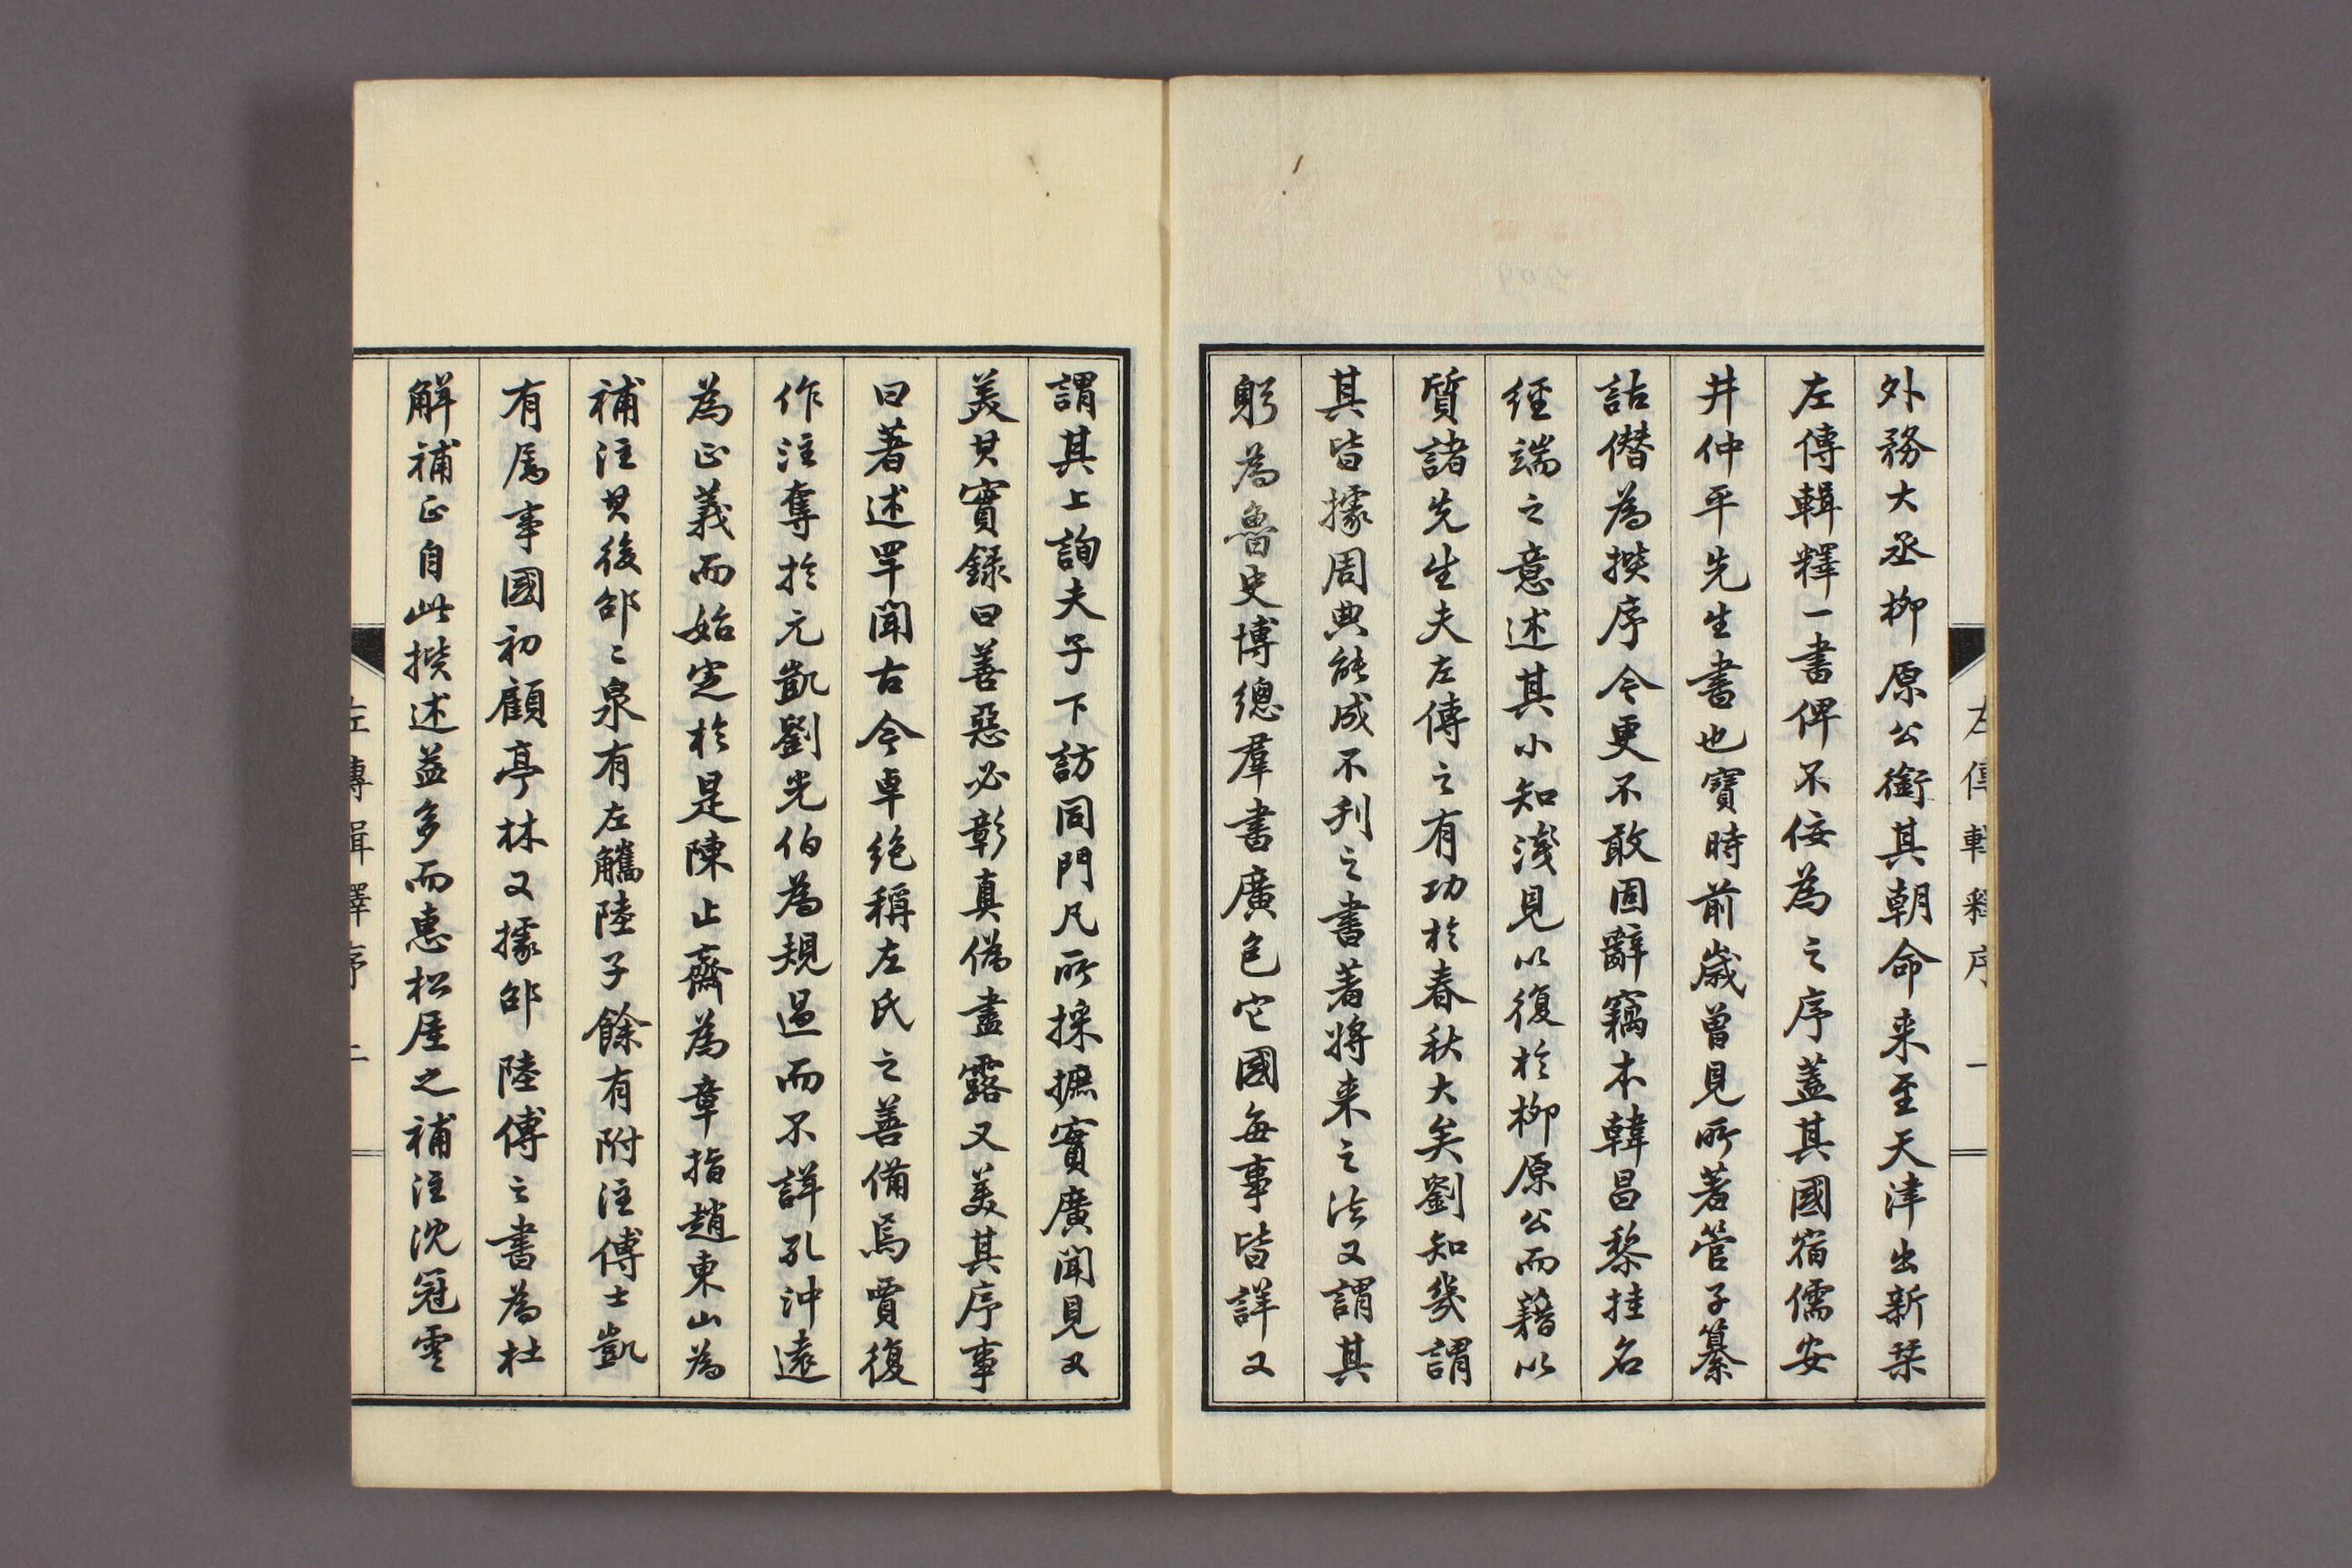 外務大丞柳原公銜其朝命来至天津出新栞
左傳輯釋一書俾不佞為之序蓋其國宿儒安
井仲平先生書也寶時前歲曾見所著管子纂
詁僭為撰序今更不敢固辭竊本韓昌黎挂名
經端之意述其小知淺見以復於柳原公而藉以
質諸先生夫左傳之有功於春秋大矣劉知幾謂
其皆據周典能成不刋之書著將来之法又謂其
躬為魯史博總羣書廣包它國每事皆詳又
謂其上詢夫子下訪同門凡所採摭實廣聞見又
美其實録曰善惡必彰真偽盡露又美其序事
曰著述罕聞古今卓絶稱左氏之善備焉賈復
作注奪於元凱劉光伯為規過而不詳孔沖遠
為正義而始定於是陳止齋為章指趙東山為
補注其後邵二泉有左觿陸子餘有附注傅士凱
有屬事國初顧亭林又據邵陸傅之書為杜
解補正自此撰述益多而惠松厓之補注沈冠雲
左傳輯釋序 一
左傳輯釋序 二